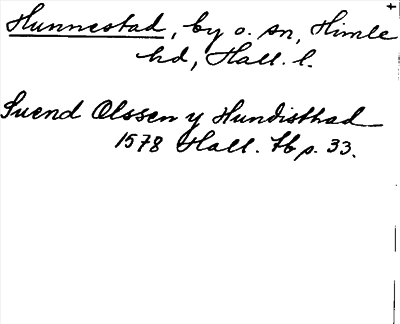 Hunnestad, by o. sn, Himle
hd, Hall. l.
Suend Olssen y Hundisthad
1578 Hall. tb p. 33.